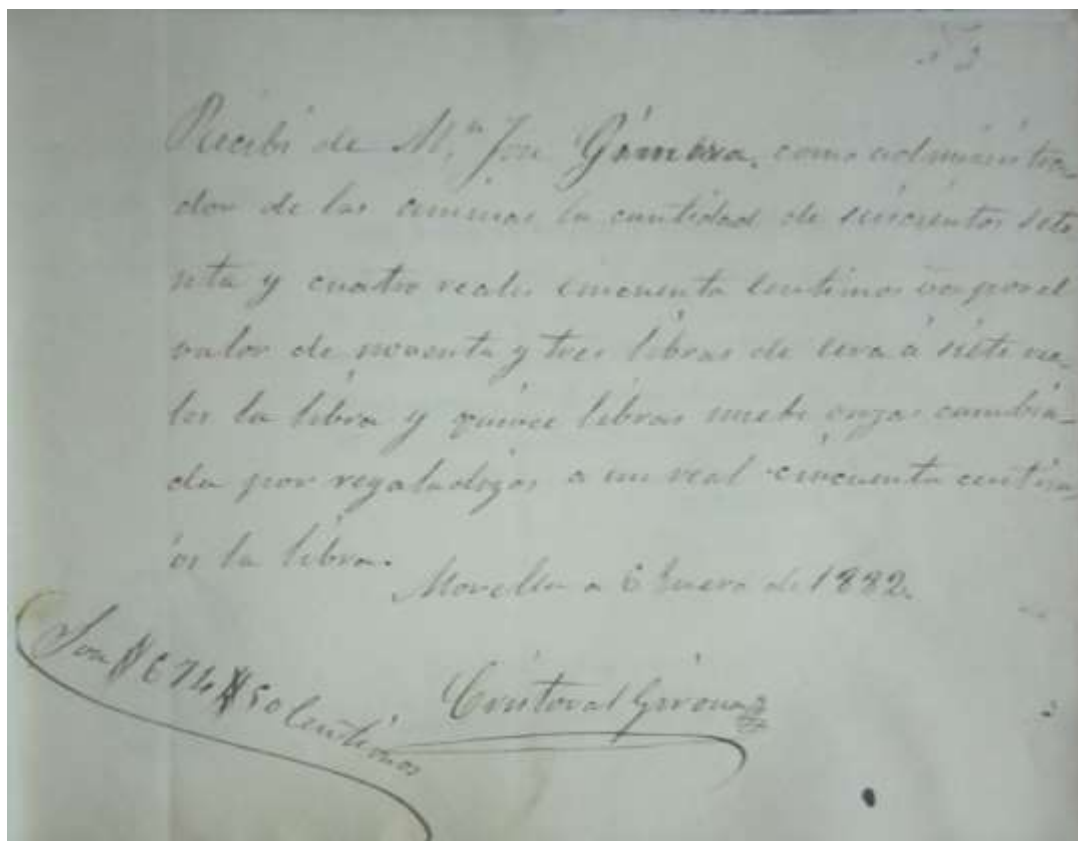 Recibi de M.n Jose Gimera, como administra-
dor de las animas la cantidad de seiscientos sete
nta y cuatro reales cincuenta centimos por el
valor de noventa y tres libras de cera á siete rea-
les la libra y quince libras nuebe onzas cambia-
da por regaladizos a un real cincuenta centim-
os la libra.
Morella a 6 Enero de 1882.
Son 674 50 Centimos
Cristoval Girona